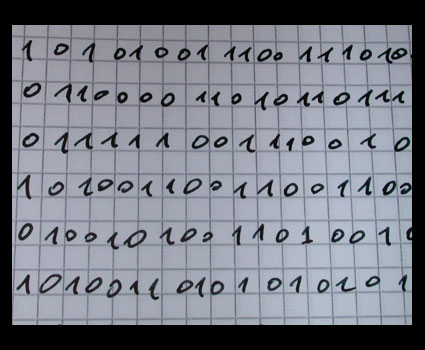 1 0 1 01001 1100 111010
0 110000 11010110111
0 11111 001110010
1 0 1001100110011 00
0 10010100 1101 0010
1010011010101 0101